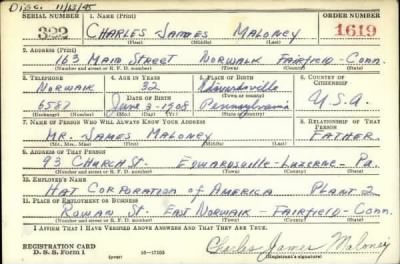 Disc. 11/15/45
SERIAL NUMBER 1. NAME (Print) ORDER NUMBER
322 CHARLES JAMES MALONEY 1619
(First) (Middle) (Last)
2. ADDRESS (Print)
163 MAIN STREET NORWALK FAIRFIELD - CONN.
(Number and street or R. F. D. number) (Town) (County) (State)
3. TELEPHONE 4. AGE IN YEARS 5. PLACE OF BIRTH 6. COUNTRY OF CITIZENSHIP
NORWALK 32 Edwardsville
DATE OF BIRTH (Town or county)
6587 June 3 - 1908 Pennsylvania U.S.A.
(Exchange) (Number) (Mo.) (Day) (Yr.) (State or country)
7. NAME OF PERSON WHO WILL ALWAYS KNOW YOUR ADDRESS 8. RELATIONSHIP OF THAT PERSON
MR. JAMES MALONEY FATHER
(Mr., Mrs., Miss) (First) (Middle) (Last)
9. ADDRESS OF THAT PERSON
93 CHURCH ST. EDWARDSVILLE - LUZERNE - PA.
(Number and street or R. F. D. number) (Town) (County) (State)
10. EMPLOYER'S NAME
HAT CORPORATION OF AMERICA PLANT 2
11. PLACE OF EMPLOYMENT OR BUSINESS
ROWAN ST. EAST NORWALK - FAIRFIELD - CONN.
(Number and street or R. F. D. number) (Town) (County) (State)
I AFFIRM THAT I HAVE VERIFIED ABOVE ANSWERS AND THAT THEY ARE TRUE.
REGISTRATION CARD
D. S. S. Form 1 (over) 16-17105
Charles James Maloney
(Registrant's signature)